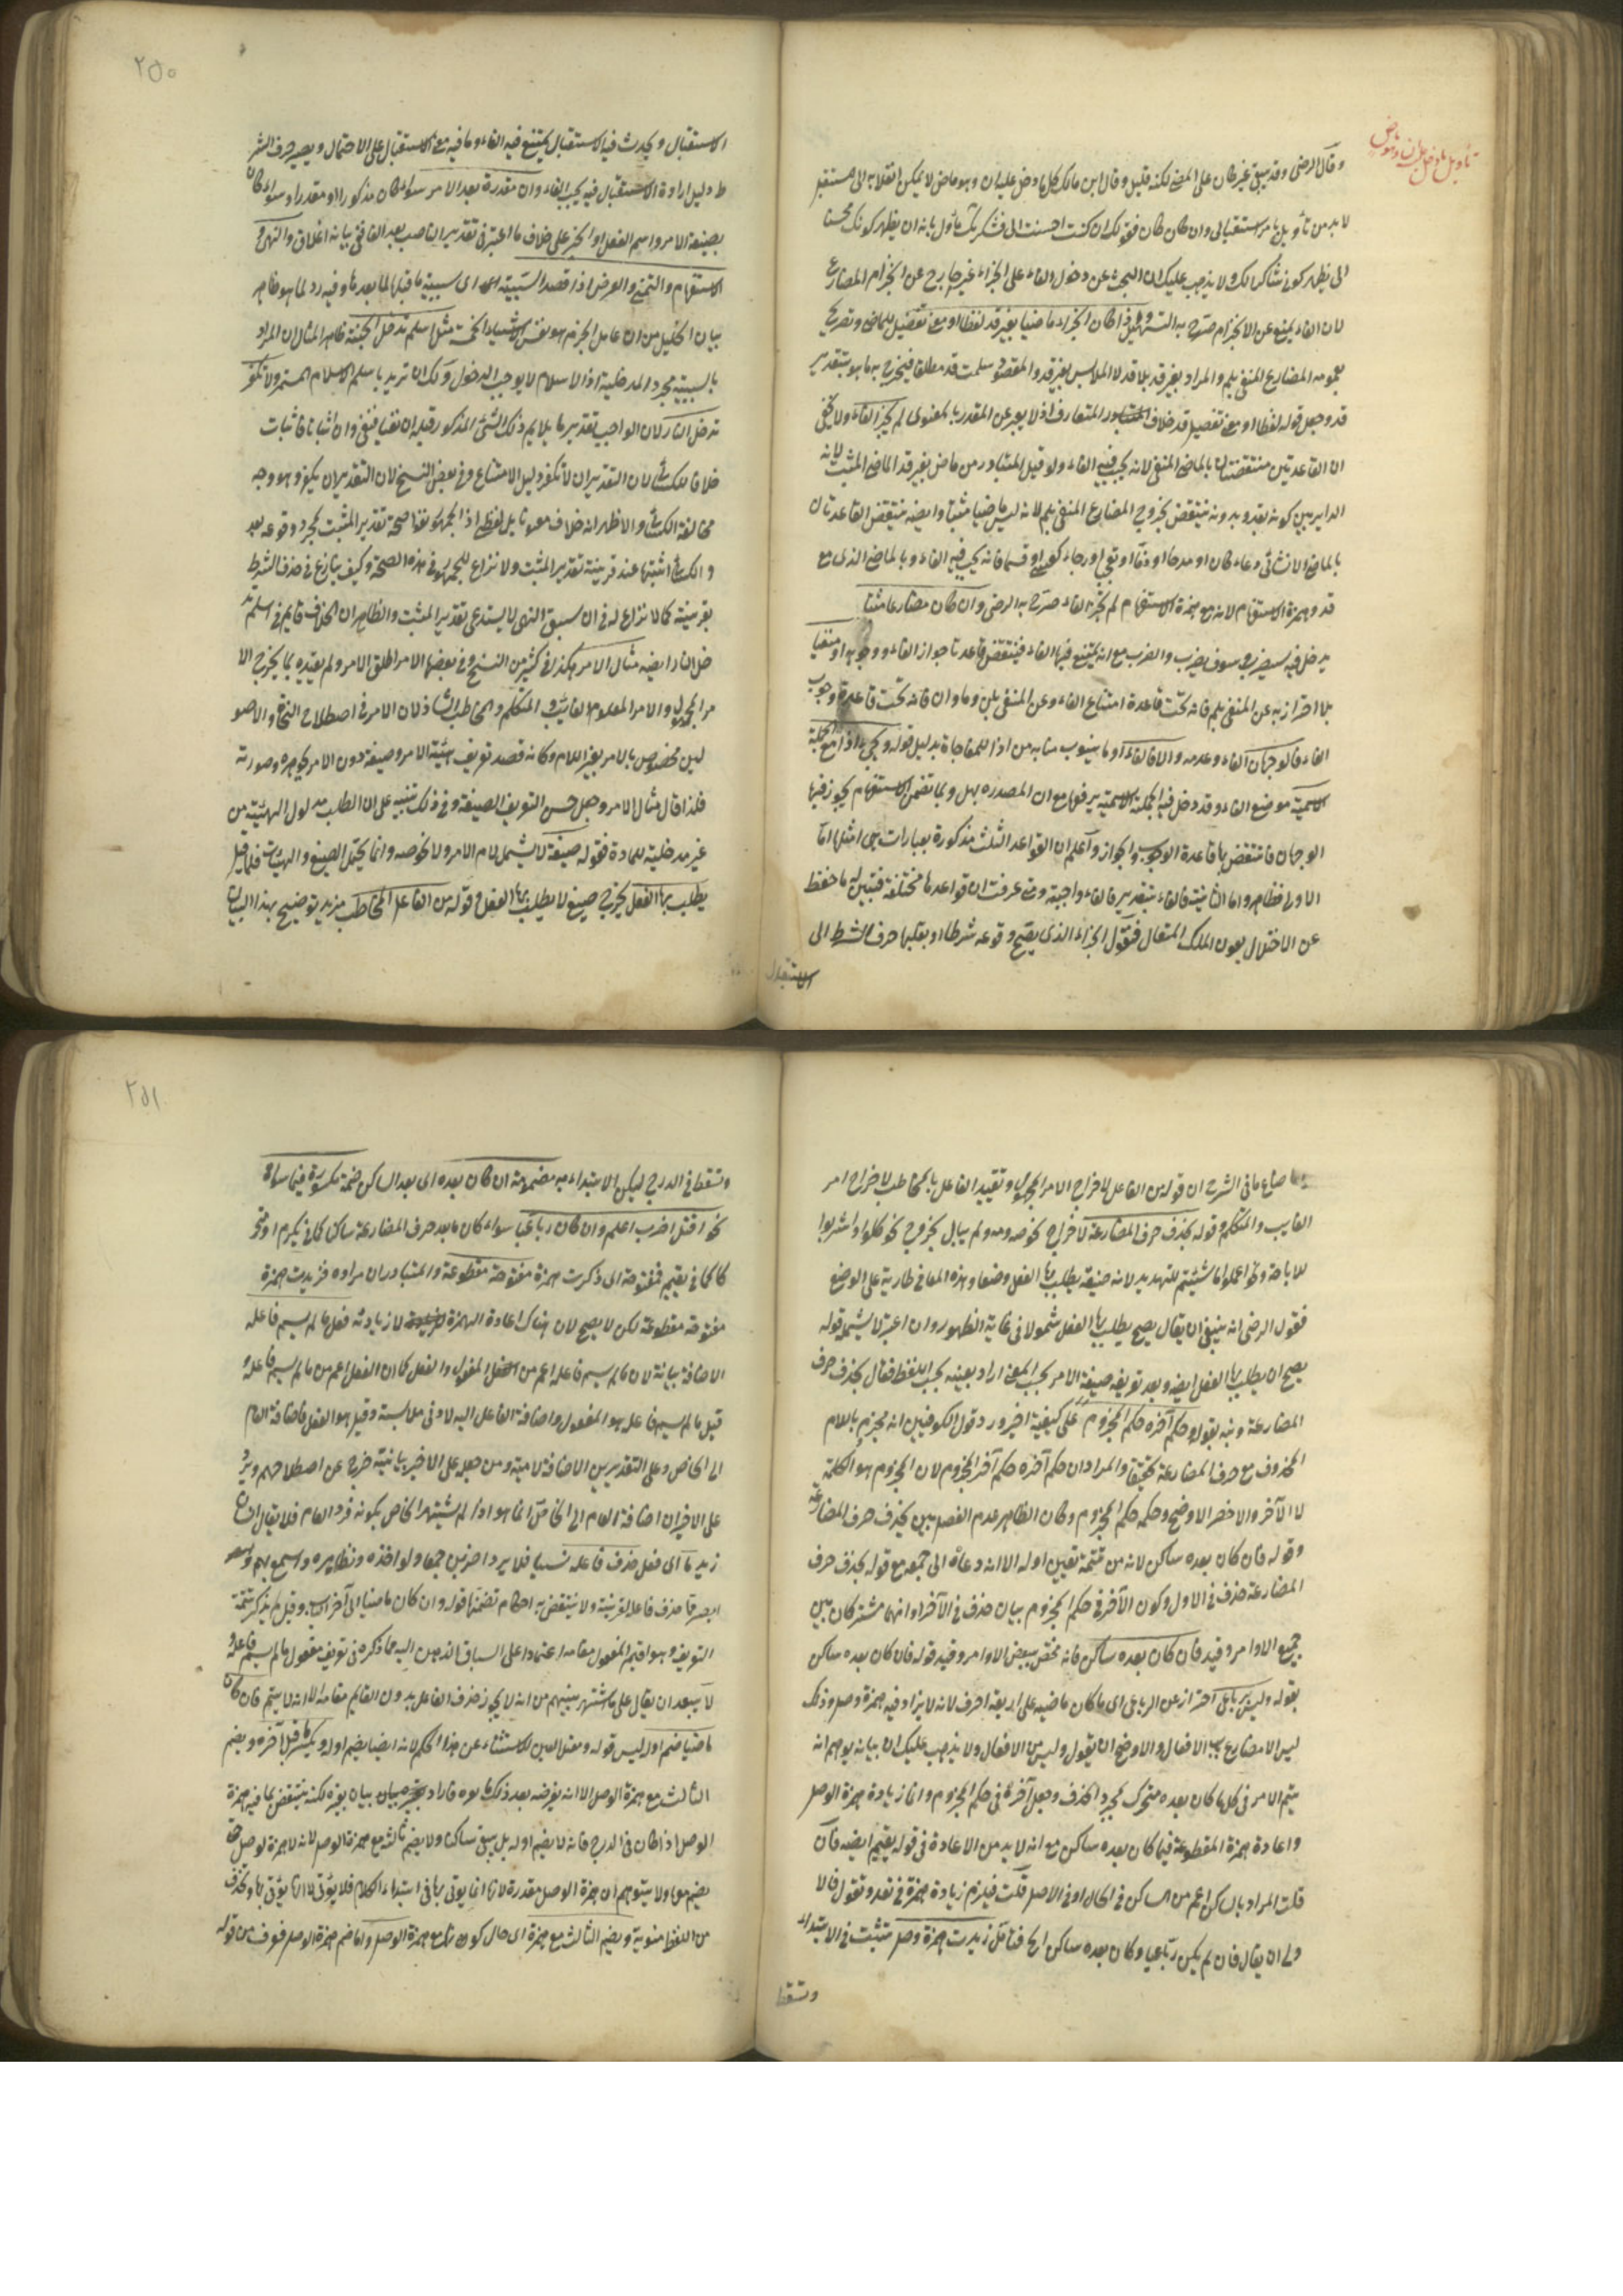 تأويل ما دخل عليه ان وهو ماض
وقال الرضى وقد يبقى بغير كان على المضى لكنه قليل وقال ابن مالك كل ما دخل عليه ان وهو ماض لا يمكن انقلابه الى مستقبل
لا بد من تأويل بامر استقبالى وان كان كان فقولك ان كنت احسنت الى فشكرتك مأول بانه ان يظهر كونك محسنا
الى يظهر كونى شاكرا لك ولا يذهب عليك ان البحث عن دخول الفاء على الجزاء غير خارج عن انجزام المضارع
لان الفاء يمنع عن الانجزام صرح به اذا كان الجزاء ماضيا بغير قد لفظا او معنى تفصيل للماضى وتصريح
بعمومه المضارع المنفى بلم والمراد بغير قد بلا قد لا الملابس بغير قد والمقصود سلمت قد مطلقا فيخرج به ما هو بتقدير
قد وجعل قوله لفظا او معنى تفصيل قد خلاف المتعارف اذ لا يعبر عن المقدر بالمعنوى لم يجز الفاء ولا يخفى
ان القاعدتين منتقضتان بالماضى المنفى لانه يجب فيه الفاء ولو قيل المتبادر من ماض بغير قد الماضى المثبت لانه
الداير بين كونه بقد وبدونه ينتقض بخروج المضارع المنفى بلم لانه ليس ماضيا مثبتا وايضه ينتقض القاعدتان
بالماضى الانشائى دعاء كان او مدحا او ذما او تعجبا او رجاء كعسى او قسما فانه يجب فيه الفاء وبالماضى الذى مع
قد وهمزة الاستفهام لانه مع همزة الاستفهام لم يجز الفاء صرح به الرضى وان كان مضارعا مثبتا
يدخل فيه سيضرب وسوف يضرب والضرب مع انه يمتنع فيها الفاء فينتقض قاعدتا جواز الفاء ووجوبه او منفيا
بلا احتراز به عن المنفى بلم فانه تحت قاعدة امتناع الفاء وعن المنفى بلن وما وان فانه تحت قاعدة وجوب
الفاء فالوجهان الفاء وعدمه والا فالفاء او ما ينوب منابه من اذا للمفاجاة بدليل قوله ويجىء اذا مع الجملة
الاسمية موضع الفاء وقد دخل فيه الجملة الاسمية برفعها مع ان المصدره بهل وبما تضمن الاستفهام يجوز فيها
الوجهان فانتقض بها قاعدة الوجوب والجواز واعلم ان القواعد الثلث مذكورة بعبارات هى امثلها اما
الاولى فظاهر واما الثانية فالفاء بتقدير فالفاء واجبة ومتى عرفت ان قواعدها مختلفة فتبين له ما حفظ
عن الاختلال بعون الملك المتعال فنقول الجزاء الذى يقبح وقوعه شرطا او يقلبها حرف الشرط الى
الاستقبال
٢٥٠
الاستقبال ويحدث فيه الاستقبال يمتنع فيه الفاء وما فيه مع الاستقبال على الاحتمال ويصير حرف الشر
ط دليل ارادة الاستقبال فيه يجب الفاء وان مقدرة بعد الامر سواء كان مذكورا او مقدرا وسواء كان
بصيغة الامر واسم الفعل او الخبر على خلاف ما اعتبر فى تقدير الناصب بعد الفاء ففى بيانه اغلاق والنهى و
الاستفهام والتمنى والعرض اذا قصد السببية اى سببية ما قبلها لما بعدها وفيه رد لما هو ظاهر
بيان الخليل من ان عامل الجزم هو نفس الاشياء الخمسة مثل اسلم تدخل الجنة ظاهر المثال ان المراد
بالسببية مجرد المدخلية اذ الاسلام لا يوجب الدخول ولك ان تريد باسلم الاسلام المستمر ولا تكفر
تدخل النار لان الواجب تقدير ما يلايم ذلك الشىء المذكور قبله ان نفيا فنفى وان اثباتا فاثبات
خلافا للكسائى لان التقدير ان لا تكفر دليل الامتناع وفى بعض النسخ لان التقدير ان يكفر وهو وجه
مخالفة الكسائى والاظهر انه خلاف معه تأيل لفظه اذ الجمهور نفوا صحة تقدير المثبت بمجرد وقوعه بعد
و الكسائى اثبتها عند قرينة تقدير المثبت ولا نزاع للجمهور فى هذه الصحة وكيف ينازع فى حذف الشرط
بقرينة كما لا نزاع له فى ان سبق النهى لا يستدعى تقدير المثبت والظاهر ان الخلاف قايم فى اسلم تد
خل النار ايضه مثال الامر هكذا فى كثير من النسخ وفى بعضها الامر اطلق الامر ولم يقيده بما يخرج الا
مر المجهول والامر المعلوم الغايب والمتكلم والمخاطب الشاذ لان الامر فى اصطلاح النحاة والاصو
ليين مخصوص بالامر بغير اللام وكانه قصد تعريف هيئة الامر وصيغة دون الامر بجوهره وصورته
فلذا قال مثال الامر وجعل جنس التعريف الصيغة وفى ذلك تنبيه على ان الطلب مدلول الهيئية من
غير مدخلية للمادة فقوله صيغة لا يشمل لام الامر ولا نحو صه وانما يحتمل الصيغ والهيئات فلما قيل
يطلب بها الفعل يخرج صيغ لا يطلب بها الفعل وقوله من الفاعل المخاطب مزيد توضيح بهذا البيان
ما ضاع ما فى الشرح ان قوله من الفاعل لاخراج الامر المجهول وتقييد الفاعل بالمخاطب لاخراج امر
الغايب والمتكلم وقوله بحذف حرف المضارعة لاخراج نحو صه ومه ولم يبال بخروج نحو كلوا واشربوا
للاباحة ونحو اعملوا ما شئتم للتهديد لانه صيغة يطلب بها الفعل وضعا وهذه المعانى طارية على الوضع
فقول الرضى انه ينبغى ان يقال يصح يطلب بها الفعل شمولا فى غاية الظهور وان اعتبر لا يشمله قوله
يصح ان يطلب بها الفعل ايضه وبعد تعريفه صيغة الامر بحسب المعنى اراد تعيينه بحسب اللفظ فقال بحذف حرف
المضارعة ونبه بقوله وحكم آخره حكم المجزوم على كيفية اخير ورد قول الكوفيين انه مجزم باللام
المحذوف مع حرف المضارعة تخفيفا والمراد ان حكم آخره حكم آخر المجزوم لان المجزوم هو الكلمة
لا الآخر والاخصر الاوضح وحكمه حكم المجزوم وكان الظاهر عدم الفصل بين بحذف حرف المضارعة
وقوله فان كان بعده ساكن لانه من تتمة تعيين اوله الا انه دعاه الى جمعه مع قوله بحذف حرف
المضارعة حذف فى الاول وكون الآخر فى حكم المجزوم بيان حذف فى الآخر او انهما مشتركان بين
جميع الاوامر وقيد فان كان بعده ساكن فانه مختص ببعض الاوامر وقيد قوله فان كان بعده ساكن
بقوله وليس برباعى احتراز عن الرباعى اى ما كان ماضيه على اربعة احرف لانه لا يزاد فيه همزة وصل وذلك
ليس الا مضارع باب الافعال والاوضح ان يقول وليس من الافعال ولا يذهب عليك ان بيانه يوهم انه
يتم الامر فى كل ما كان بعده متحرك بمجرد الحذف وجعل آخره فى حكم المجزوم وانما زيادة همزة الوصل
واعادة همزة المقطوعة فيما كان بعده ساكن مع انه لا بد من الاعادة فى قوله يقيم ايضه فان
قلت المراد بالساكن اعم من الساكن فى الحال او فى الاصل قلت فيلزم زيادة همزة فى تعد وتقول فالا
ولى ان يقال فان لم يكن رباعيا وكان بعده ساكن الخ فتأمل زيدت همزة وصل تثبت فى الابتداء
وتسقط
٢٥١
وتسقط فى الدرج ليمكن الابتداء به مضمومة ان كان بعده اى بعد الساكن ضمة مكسورة فيما سواه
نحو اقتل اضرب اعلم وان كان رباعيا سواء كان ما بعد حرف المضارعة ساكن كما فى يكرم او متحر
كا كما فى يقيم فمفتوحة اى ذكرت همزة مفتوحة مقطوعة والمتبادر ان مراده فزيدت همزة
مفتوحة مقطوعة لكن لا يصح لان هناك اعادة الهمزة لا زيادته فعل ما لم يسم فاعله
الاضافة بيانية لان ما لم يسم فاعله اعم من المفعول والفعل كما ان الفعل اعم من ما لم يسم فاعله و
قيل ما لم يسم فاعله هو المفعول واضافة الفاعل اليه لادنى ملابسة وقيل هو الفعل فاضافة العام
الى الخاص وعلى التقديرين الاضافة لامية ومن جعله على الاخير بيانية خرج عن اصطلاحهم ويرد
على الاخير ان اضافة العام الى الخاص انما هو اذا لم يشتهر الخاص بكونه فرد العام فلا يقال انسان
زيد ما اى فعل حذف فاعله نسيا فلا يرد اضربن جمعا ولواخذه ونظايره واسمع بهم و
ابصر مما حذف فاعله لقرينة ولا ينتقض به احكام تضمنها قوله وان كان ماضيا الى آخر الباب وقيل لم يذكر تتمة
التعريف وهو اقيم المفعول مقامه اعتمادا على انسباق الذهن اليه مما ذكره فى تعريف مفعول ما لم يسم فاعله و
لا يبعد ان يقال على ما اشتهر بينهم من انه لا يجوز حذف الفاعل بدون القايم مقامه الا انه لا يتم فان كان
ماضيا ضم اوله ليس قوله ومعتل العين للاستثناء عن هذا الحكم لانه ايضا يضم اوله ويكسر ما قبل آخره ويضم
الثالث مع همزة الوصل الا انه يعرضه بعد ذلك ما يعرضه فاراد بيان بغيره لكنه ينتقض بما فيه همزة
الوصل اذا كان فى الدرج فانه لا يضم اوله بل يبقى ساكنا ولا يضم ثالثه مع همزة الوصل لانه لا همزة لوصل حتى
يضم معها ولا يتوهم ان همزة الوصل مقدرة لانها انما يؤتى بها فى ابتداء الكلام فلا يؤتى لا انها يؤتى بها وتحذف
من اللفظ منوية ويضم الثالث مع همزة اى حال كونه مع همزة الوصل وانما ضم همزة الوصل خوف من قوله